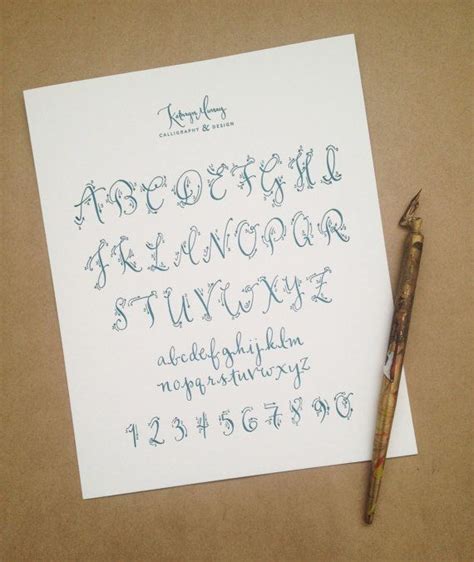 Kathryn Murray
CALLIGRAPHY & DESIGN
ABCDEFGHI
JKLMNOPQR
STUVWXYZ
abcdefghijklm
nopqrstuvwxyz
1234567890